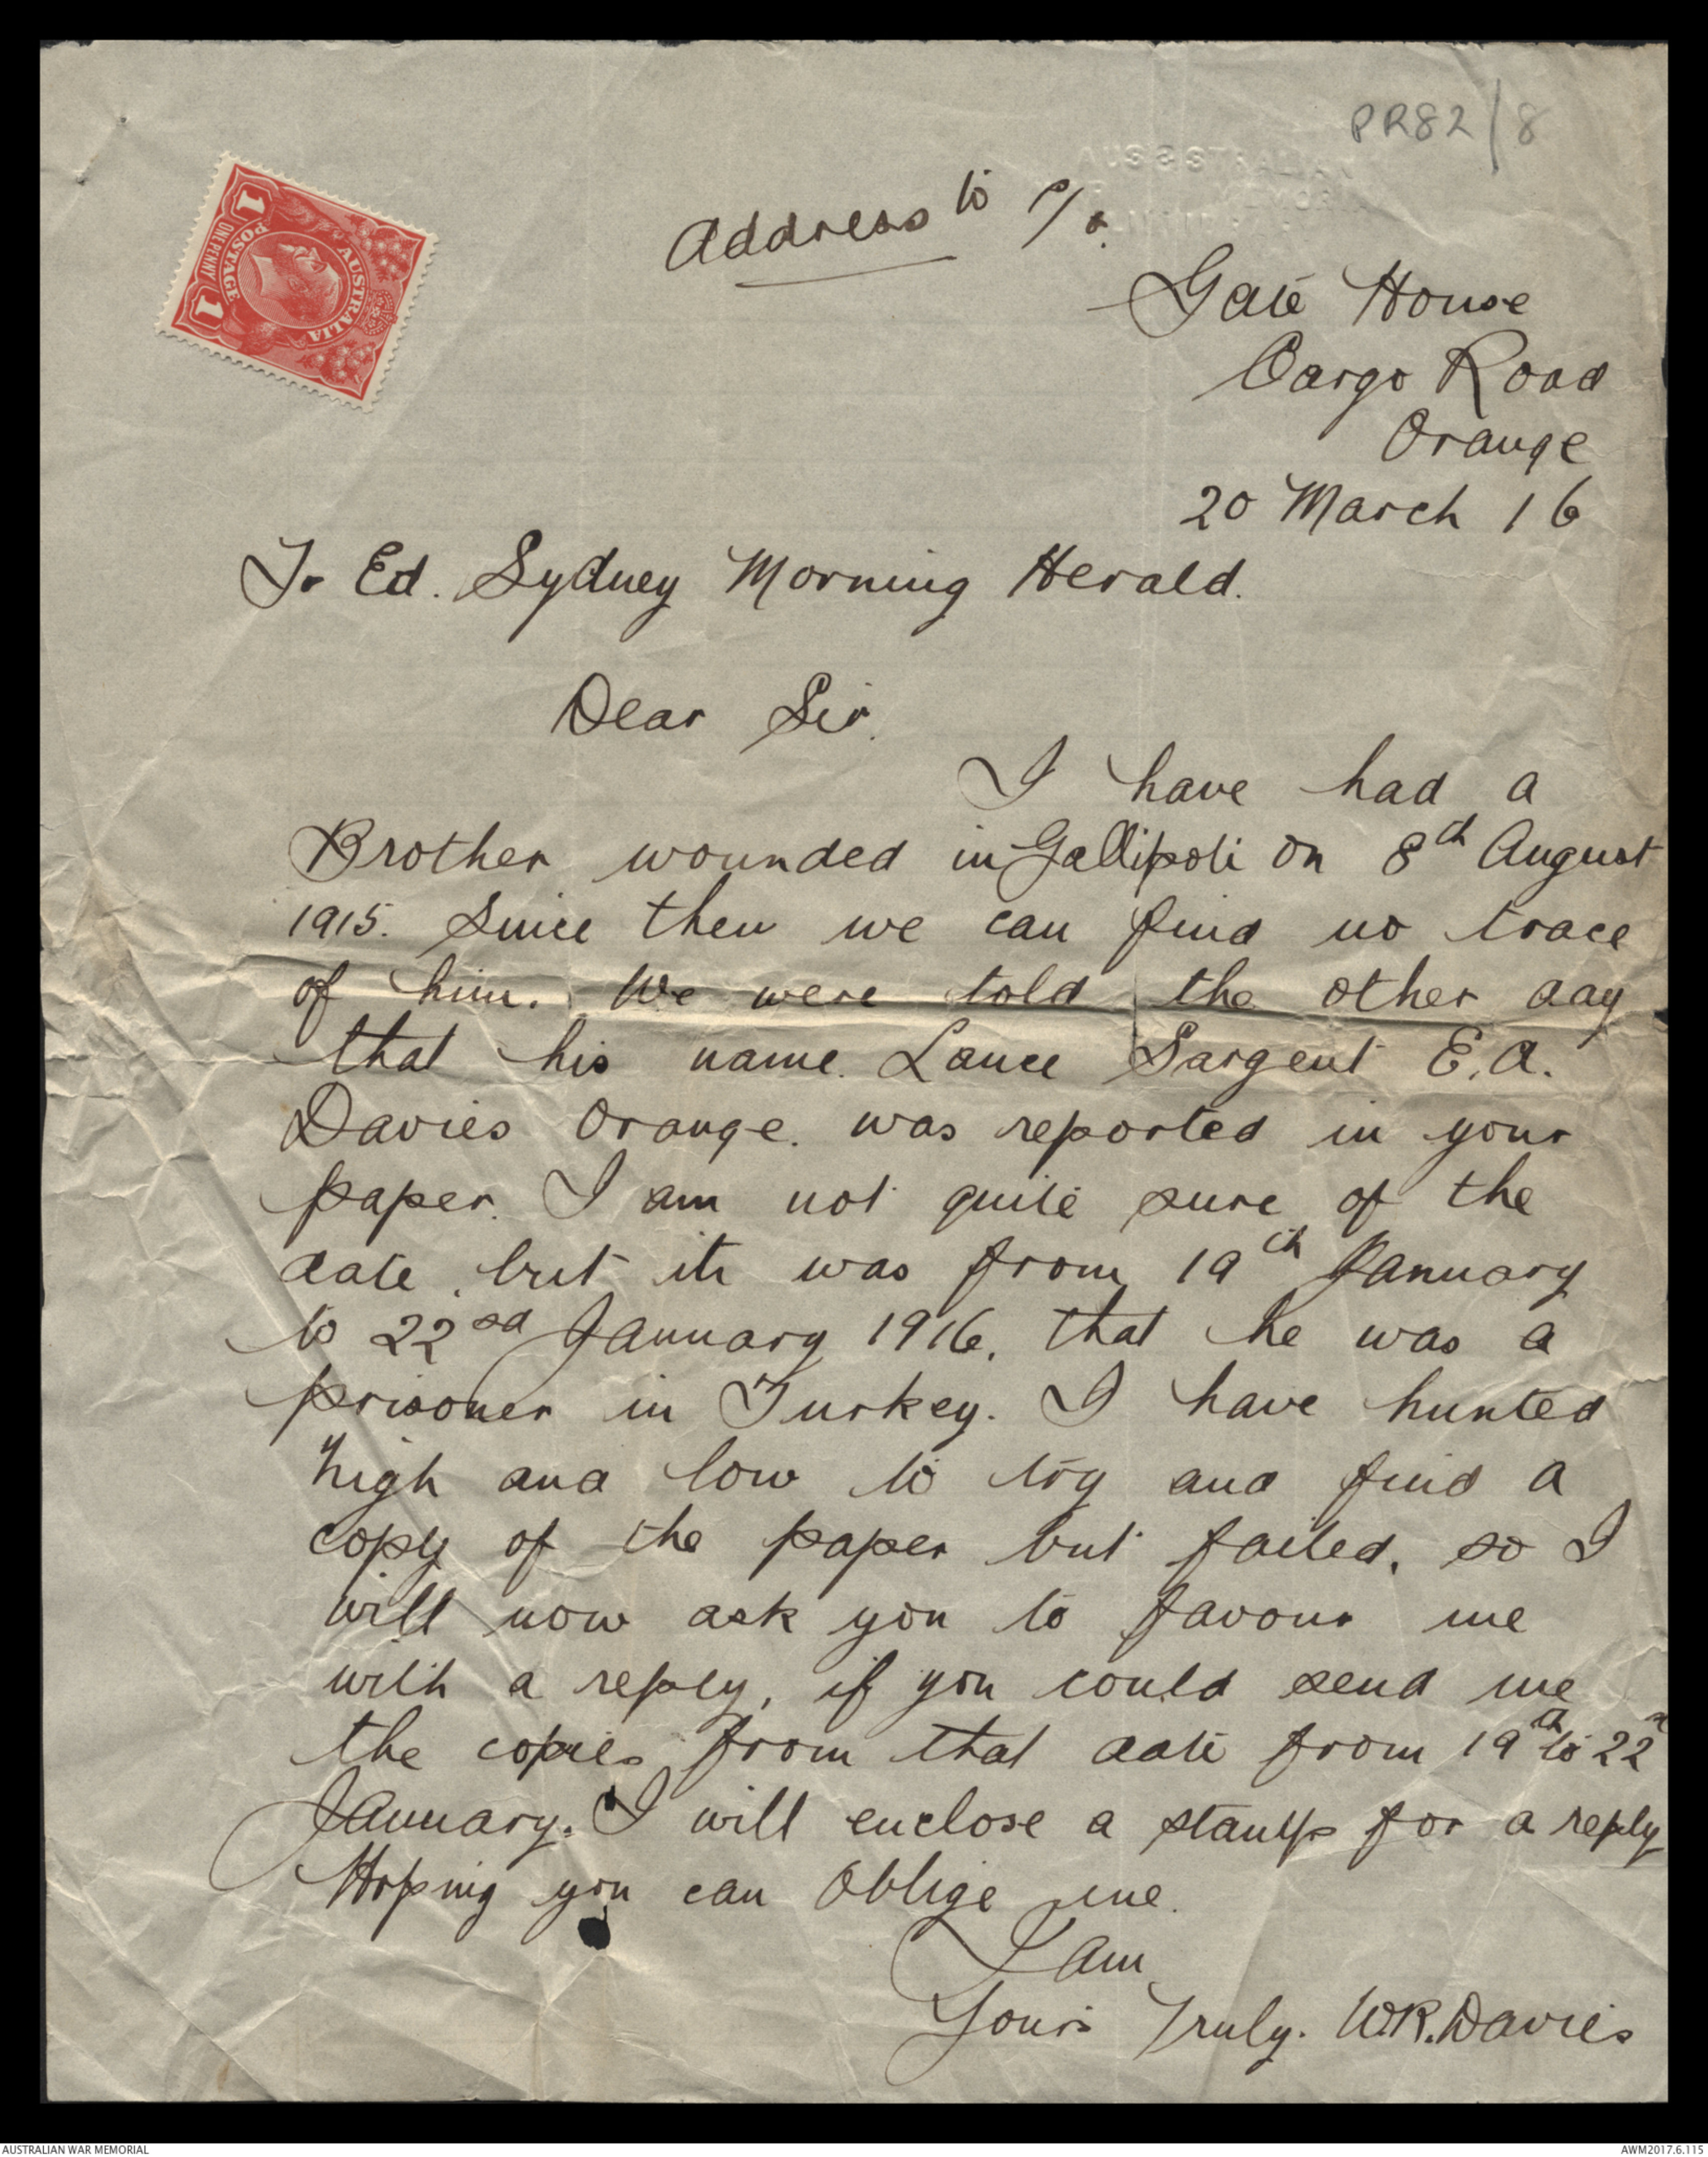 PR82/8
Address to
Gate House
Cargo Road
Orange
20 March 16
To Ed. Sydney Morning Herald.
Dear Sir.
I have had a
Brother wounded in Gallipoli on 8th August
1915. Since then we can find no trace
of him. We were told the other day
that his name. Lance Sargent E.A.
Davies Orange. was reported in your
paper. I am not quite sure of the
date, but it was from 19th January
to 22nd January 1916. that he was a
prisoner in Turkey. I have hunted
high and low to try and find a
copy of the paper but failed. so I
will now ask you to favour me
with a reply, if you could send me
the copies from that date from 19th to 22
January. I will enclose a stamp for a reply
Hoping you can oblige me.
I am
Yours Truly. W.R. Davies
AUSTRALIA
POSTAGE
ONE PENNY
1
1
AUSTRALIAN WAR MEMORIAL
AWM2017.6.115